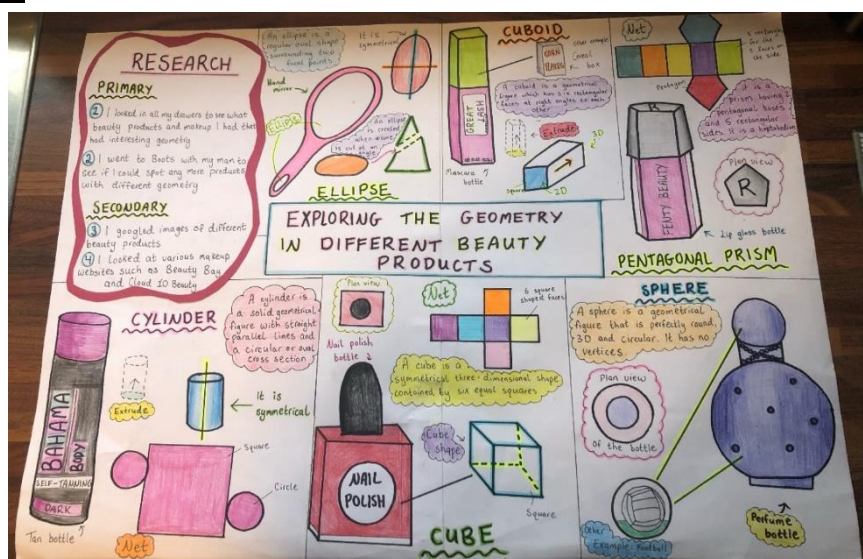 RESEARCH
PRIMARY
1 I looked in all my drawers to see what
beauty products and makeup I had that
had interesting geometry
2 I went to Boots with my mom to
see if I could spot any more products
with different geometry
SECONDARY
3 I googled images of different
beauty products
4 I looked at various makeup
websites such as Beauty Bay
and Cloud 10 Beauty
An ellipse is a
regular oval shape
surrounding two
focal points.
It is
symmetrical
Hand
mirror
ELLIPSE
An ellipse
is created
when a cone
is cut at an
angle
ELLIPSE
CUBOID
other example
Cereal
box
CORN
FLAKES
A cuboid is a geometrical
figure which has six rectangular
faces at right angles to each
other.
GREAT
LASH
Extrude
3D
square
2D
Mascara
bottle
Net
5 rectangles
for the
5 faces on
the side.
Pentagon
It is a
prism having 2
pentagonal bases
and 5 rectangular
sides. It is a heptahedron
R
FENTY BEAUTY
Plan view
R
Lip gloss bottle
PENTAGONAL PRISM
EXPLORING THE GEOMETRY
IN DIFFERENT BEAUTY
PRODUCTS
CYLINDER
A cylinder is
a solid geometrical
figure with straight
parallel lines and
a circular or oval
cross section
BAHAMA
BODY
SELF-TANNING
DARK
Tan bottle
Extrude
It is
symmetrical
Square
Circle
Net
Plan view
Nail polish
bottle
Net
6 square
shaped faces
A cube is a
symmetrical three-dimensional shape
contained by six equal squares
NAIL
POLISH
Cube
shape
Square
CUBE
SPHERE
A sphere is a geometrical
figure that is perfectly round,
3D and circular. It has no
vertices.
Plan view
Of the bottle
Other
Example- Football
Perfume
bottle